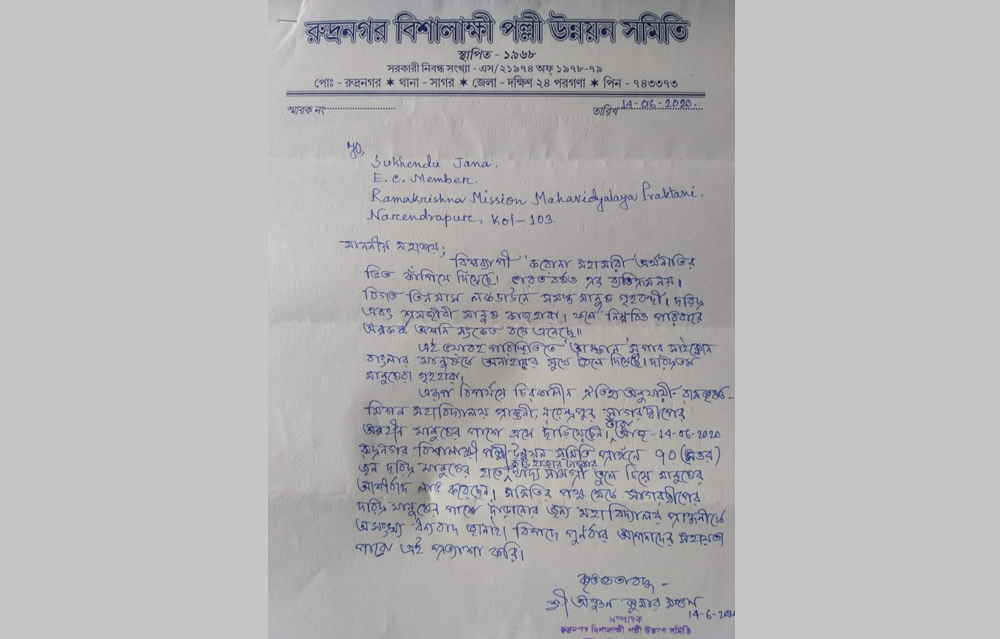 রুদ্রনগর বিশালাক্ষী পল্লী উন্নয়ন সমিতি
স্থাপিত - ১৯৬৮
সরকারী নিবন্ধ সংখ্যা - এস/২১৯৭৪ অফ্ ১৯৭৮-৭৯
পোঃ - রুদ্রনগর ★ থানা - সাগর ★ জেলা - দক্ষিণ ২৪ পরগণা ★ পিন - ৭৪৩৩৭৩
স্মারক নং
তারিখ 14-06-2020
To,
Sukhendu Jana.
E.C. Member.
Ramakrishna Mission Mahavidyalaya Praktani.
Narendrapur, Kol-103.
মাননীয় মহাশয়,
বিশ্বব্যাপী করোনা মহামারী অর্থনীতির
ভিত কাঁপিয়ে দিয়েছে। ভারতবর্ষও এর ব্যতিক্রম নয়।
বিগত তিনমাস লকডাউনে সমস্ত মানুষ গৃহবন্দী। দরিদ্র
এবং শ্রমজীবী মানুষ কাজহারা। ফলে নিম্নবিত্ত পরিবারে
অশনি সংকেত বয়ে এনেছে॥
এই ভয়াবহ পরিস্থিতিতে 'আমফান' সুপার সাইক্লোন
বাংলার মানুষকে অনাহারের মুখে ঠেলে দিয়েছে। দরিদ্রতম
মানুষেরা গৃহহারা।
এরূপ বিপর্যয়ে চিরকালীন ঐতিহ্য অনুযায়ী রামকৃষ্ণ-
মিশন মহাবিদ্যালয় প্রাক্তনী, নরেন্দ্রপুর সাগরদ্বীপের
অসহায় মানুষের পাশে এসে দাঁড়িয়েছেন। তাঁরা আজ - 14-06-2020
রুদ্রনগর বিশালাক্ষী পল্লী উন্নয়ন সমিতি প্রাঙ্গনে ৭০ (সত্তর)
জন দরিদ্র মানুষের হাতে কুড়ি হাজার টাকার খাদ্য সামগ্রী তুলে দিয়ে মানুষের
আশীর্বাদ লাভ করেছেন। সমিতির পক্ষ থেকে সাগরদ্বীপের
দরিদ্র মানুষের পাশে দাঁড়ানোর জন্য মহাবিদ্যালয় প্রাক্তনীকে
অসংখ্য ধন্যবাদ জানাই। বিপদে পুনর্বার আপনাদের সহায়তা
পাবো এই প্রত্যাশা করি।
কৃতজ্ঞতাবদ্ধ -
শ্রী কুমার মণ্ডল
14-6-2020
সম্পাদক
রুদ্রনগর বিশালাক্ষী পল্লী উন্নয়ন সমিতি